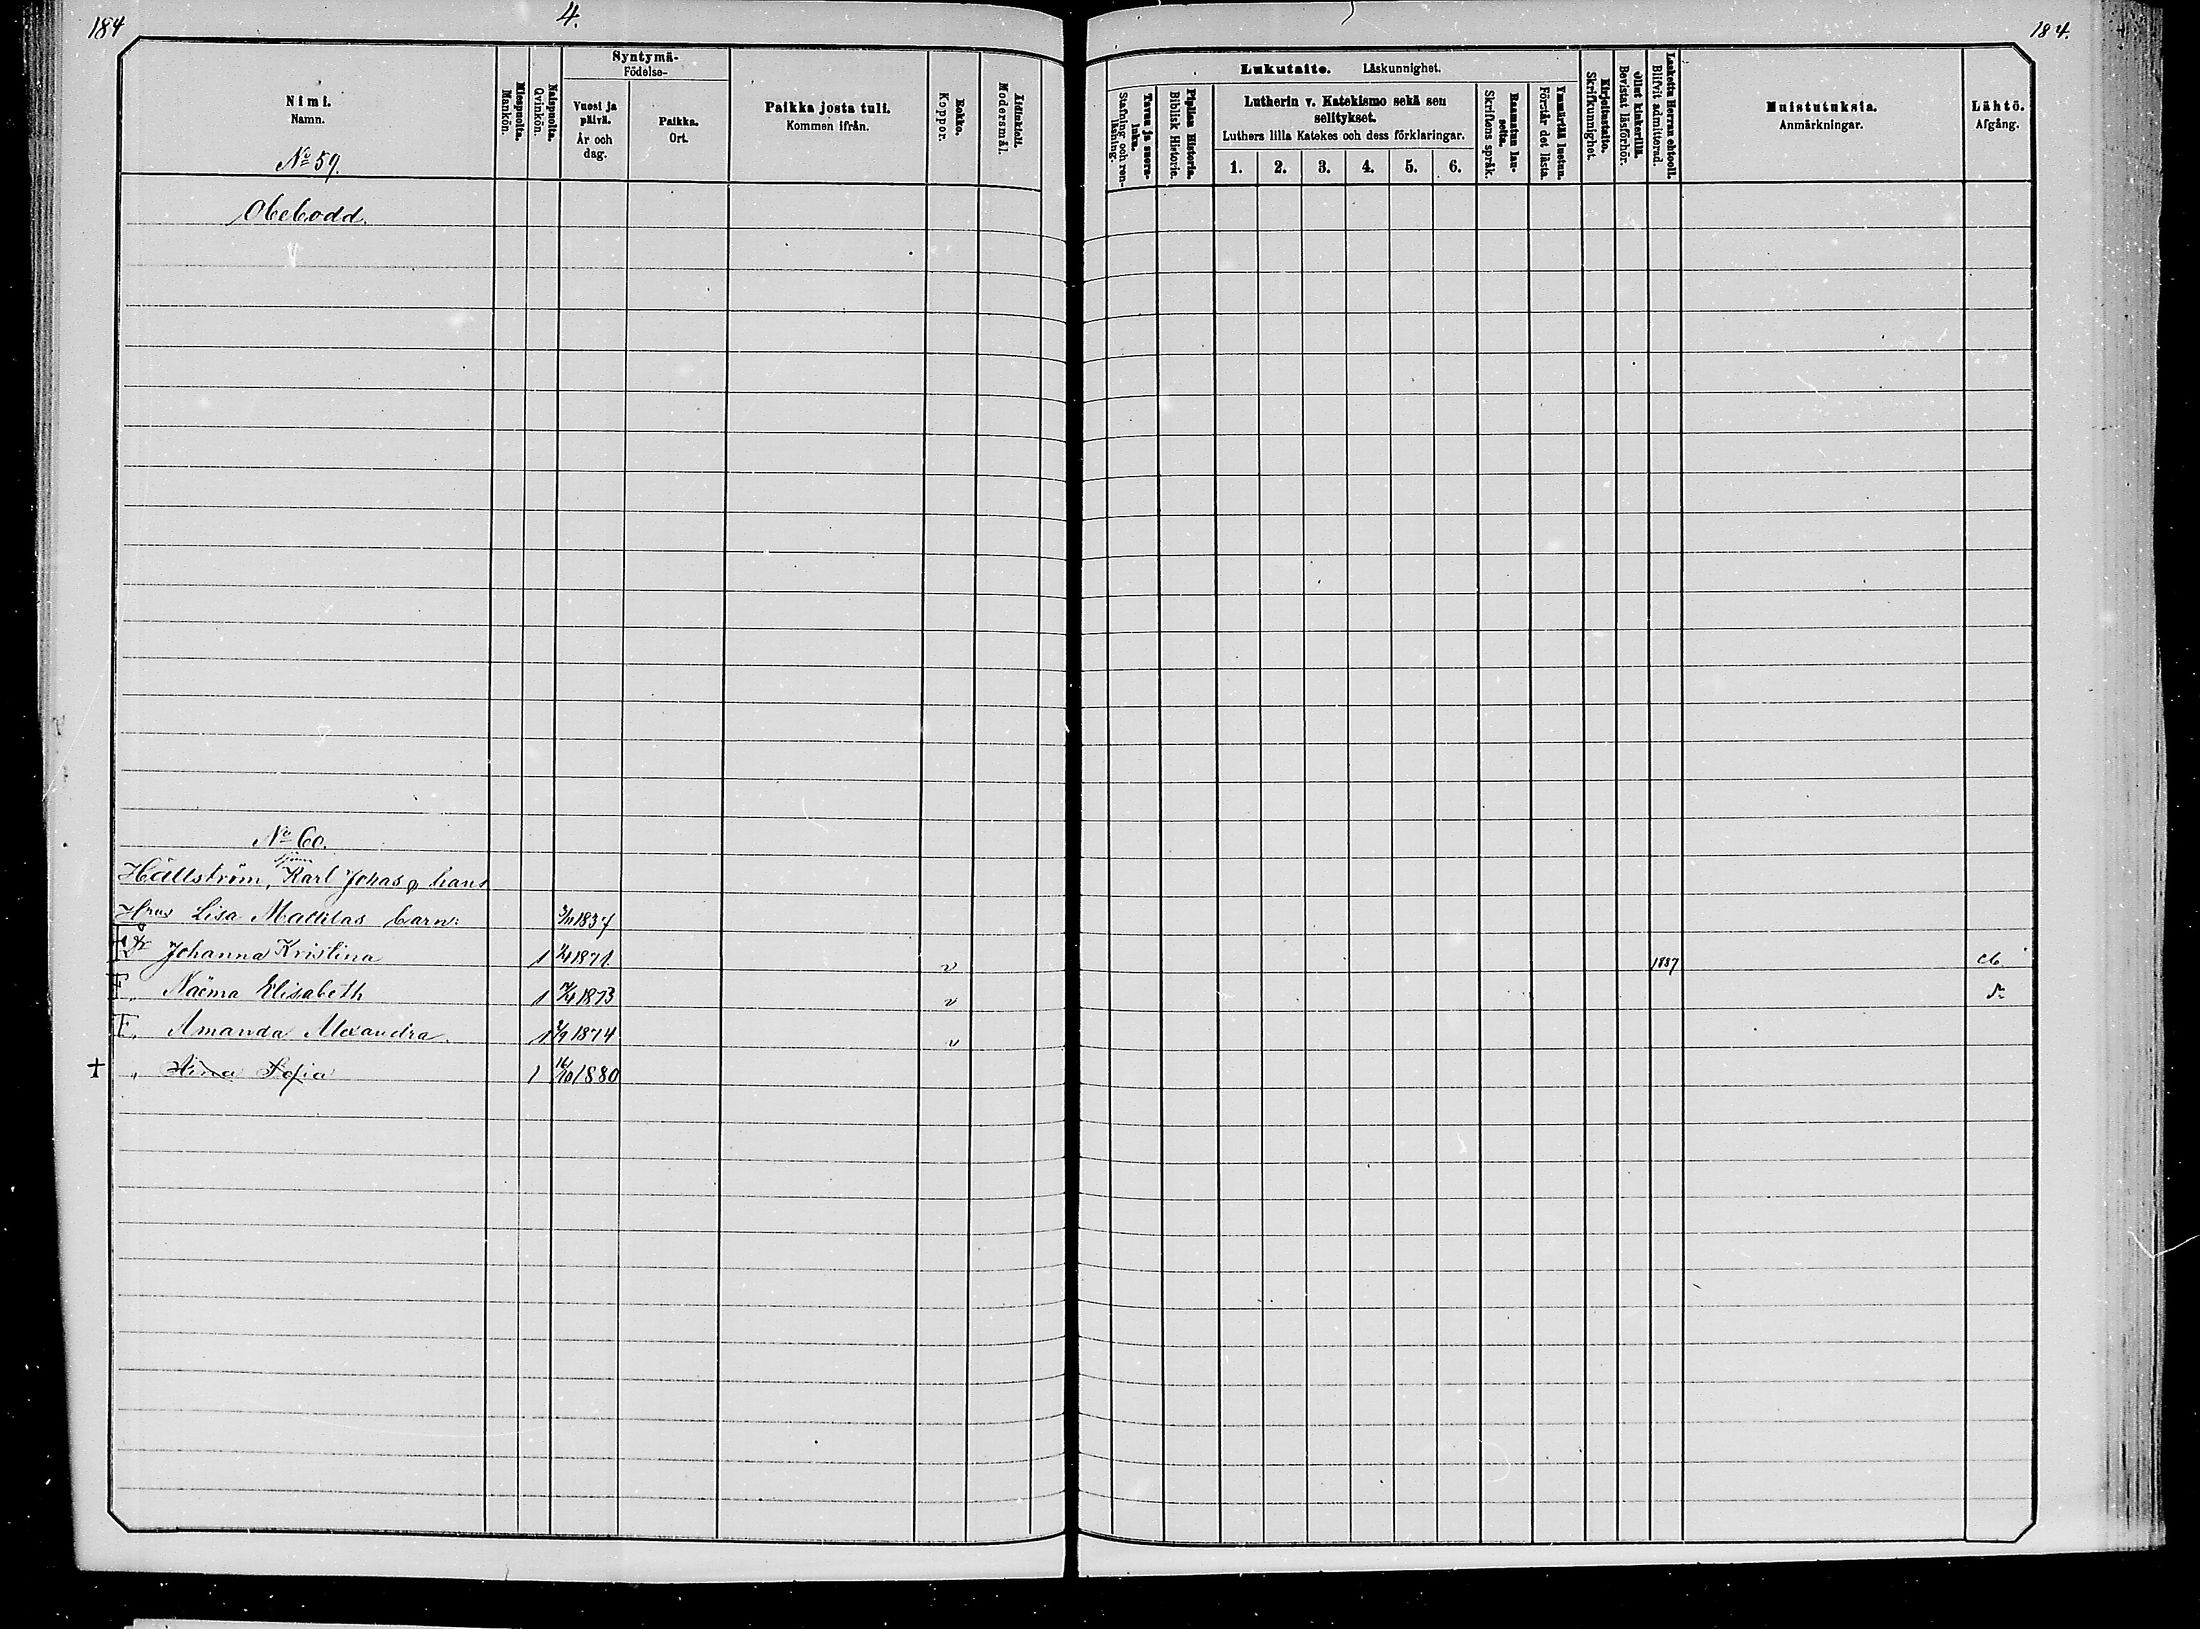 184
4.
184.
Nimi.
Namn.
Miespuolta.
Mankön.
Naispuolta.
Qvinkön.
Syntymä-
Födelse-
Vuosi ja päivä.
År och dag.
Paikka.
Ort.
Paikka josta tuli.
Kommen ifrån.
Rokko.
Koppor.
Äidinkieli.
Modersmål.
Lukutaito. Läskunnighet.
Tavuu ja suora-luku.
Stafning och ren-läsning.
Piplian Historia.
Biblisk Historie.
Lutherin v. Katekismo sekä sen
selitykset.
Luthers lilla Katekes och dess förklaringar.
1. 2. 3. 4. 5. 6.
Raamatun lau-seita.
Skriftens språk.
Ymmärtää luetun.
Förstår det lästa.
Kirjoitustaito.
Skrifkunnighet.
Ollut kinkerillä.
Bevistat läsförhör.
Laskettu Herran ehtooll.
Blifvit admitterad.
Muistutuksia.
Anmärkningar.
Lähtö.
Afgång.
No 59.
Obebodd.
No 60.
Hällström, Karl Johas o hans
Hrus Lisa Matildas barn: 1837
Dr Johanna Kristina 1 1871. v 1887
F „ Naëma Elisabeth 1 1873 v
F „ Amanda Alexandra 1 1874 v
+ „ Hina Sofia 1 16/10 1880